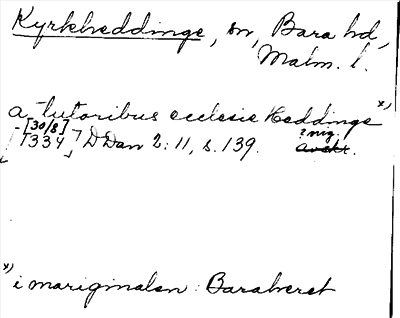 Kyrkheddinge, sn, Bara hd,
Malm. l.
a tutoribus ecclesie Heddinge x)
-[30/8]
[1334] DDan 2:11, s. 139. ? mig.
avskr.
x) i mariginalen: Baraheret